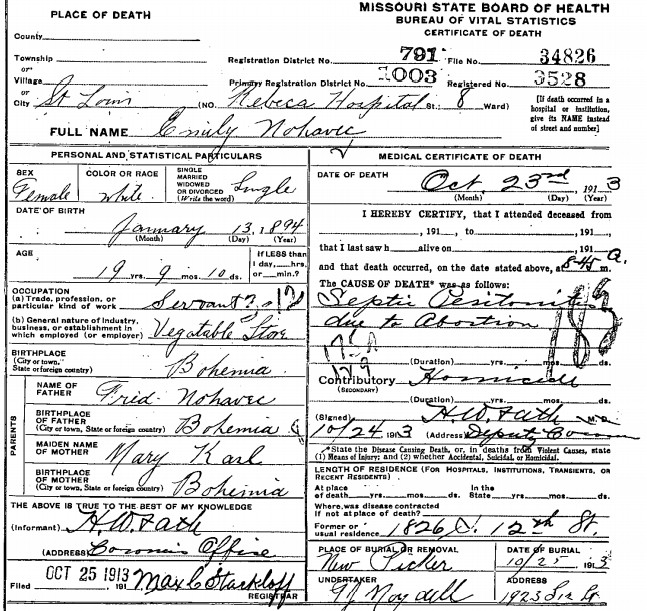 MISSOURI STATE BOARD OF HEALTH
BUREAU OF VITAL STATISTICS
CERTIFICATE OF DEATH
PLACE OF DEATH
County
Township
or
Village
or
City St Louis
Registration District No. 791 File No. 34826
Primary Registration District No. 1003 Registered No. 3528
(NO. Rebeca Hospital St: 8 Ward)
[If death occurred in a
hospital or institution,
give its NAME instead
of street and number]
FULL NAME Emily Nohavec
PERSONAL AND STATISTICAL PARTICULARS
SEX
Female
COLOR OR RACE
white
SINGLE
MARRIED
WIDOWED
OR DIVORCED
(Write the word)
Single
DATE OF BIRTH
January 13, 1894
(Month) (Day) (Year)
AGE
19 yrs. 9 mos. 10 ds.
If LESS than
1 day, hrs.
or min.?
OCCUPATION
(a) Trade, profession, or
particular kind of work Servant
(b) General nature of industry,
business, or establishment in
which employed (or employer) Vegatable Store
BIRTHPLACE
(City or town,
State or foreign country) Bohemia
PARENTS
NAME OF
FATHER Frid. Nohavec
BIRTHPLACE
OF FATHER
(City or town, State or foreign country) Bohemia
MAIDEN NAME
OF MOTHER Mary Karl
BIRTHPLACE
OF MOTHER
(City or town, State or foreign country) Bohemia
THE ABOVE IS TRUE TO THE BEST OF MY KNOWLEDGE
(Informant) H.W. Fath
(ADDRESS) Coroners Office
Filed OCT 25 1913 , 191 Max C Starkloff
REGISTRAR
MEDICAL CERTIFICATE OF DEATH
DATE OF DEATH
Oct. 23rd, 1913
(Month) (Day) (Year)
I HEREBY CERTIFY, that I attended deceased from
, 191 , to , 191 ,
that I last saw h alive on , 191
and that death occurred, on the date stated above, at 8-45 a. m.
The CAUSE OF DEATH* was as follows:
Septic Peritonitis
due to Abortion
(Duration) yrs. mos. ds.
Contributory Homicide
(SECONDARY)
(Duration) yrs. mos. ds.
(Signed) H.W. Fath M.D.
10/24 1913 (Address) Deputy
*State the Disease Causing Death, or, in deaths from Violent Causes, state
(1) Means of Injury; and (2) whether Accidental, Suicidal or Homicidal.
LENGTH OF RESIDENCE (FOR HOSPITALS, INSTITUTIONS, TRANSIENTS, OR
RECENT RESIDENTS)
At place
of death yrs. mos. ds.
In the
State yrs. mos. ds.
Where was disease contracted
if not at place of death?
Former or
usual residence 1826 12th St.
PLACE OF BURIAL OR REMOVAL
New Picker
DATE OF BURIAL
10/25 1913
UNDERTAKER
ADDRESS
1923